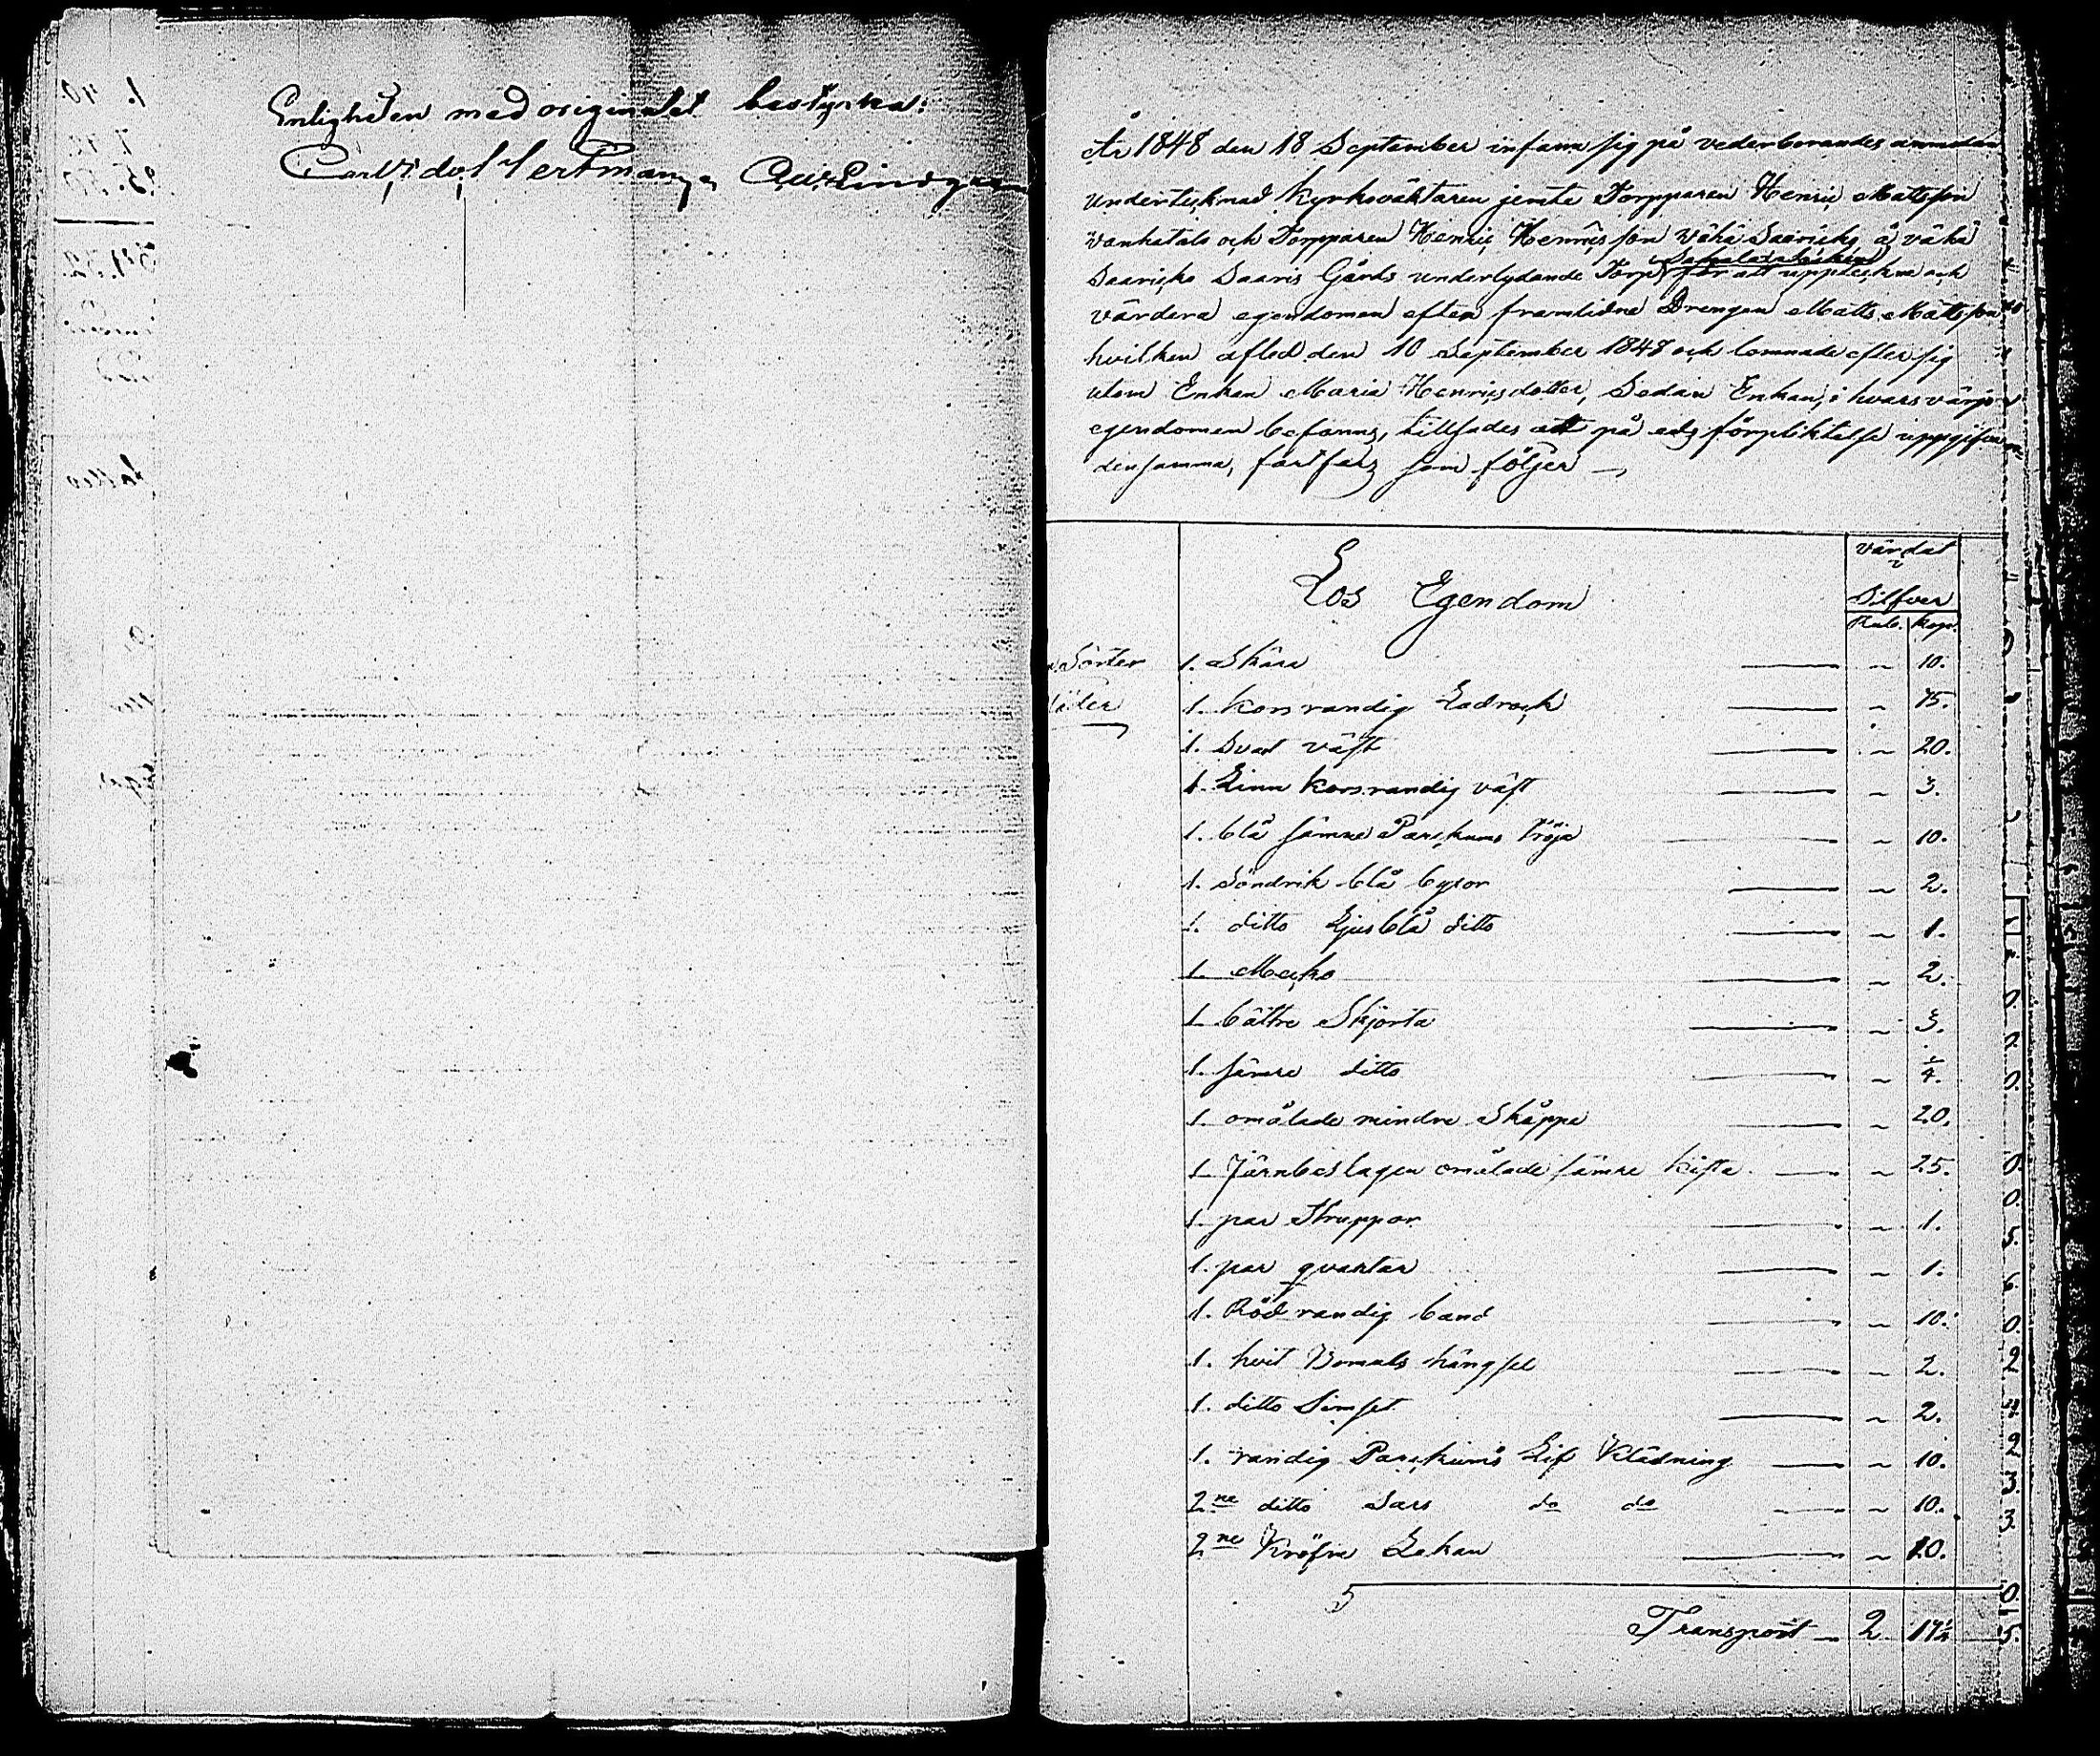 Enligheten med originalet bestyrka:
År 1848 den 18 September infann sig på vederbörandes anmodan
undertecknad Kyrkovaktaren jemte Torpparen Henric Mattsson
vanhatalo och Torpparen Henric Henricsson Vähä Saaricko å vähä
Saaricko Saaris Gårds underlydande Torp för att uppteckna och
värdera egendomen efter framlidne Drengen Matts Mattsson
hvilken afled den 10 September 1848 och lemnade efter sig
utom Enkan Maria Henricsdotter, Sedan Enkan, i hvars värjo
egendomen befanns, tillsades att på ed förpliktelse uppgifva
densamma, fortfars som följer
Lös Egendom
värdet
Silfver
Rub. kop.
Sorter 1. Skära — " 10.
läder 1. korsrandig Ladrock — " 75.
1. Svart väst — " 20.
1. Linn korsrandig väst — " 3.
1. blå sämre Parckums Tröja — " 10.
1. Söndrik blå byxor — " 2.
1. ditto Ljusblå ditto — " 1.
1. Mecko — " 2.
1. bättre Skjorta — " 3.
1. sämre ditto — " ¼.
1. omålade mindre Skåppe — " 20.
1. Järnbeslagen omålade sämre kista — " 25.
1. par Struppor — " 1.
1. par — " 1.
1. Röd randig band — " 10.
1. hvit Bomuls hängsel — " 2.
1. ditto — " 2.
1. randig Parckums Lif Klädning — " 10.
2ne ditto Sars do do — " 10.
2ne Lakan — " 10.
Transport — 2 17¼